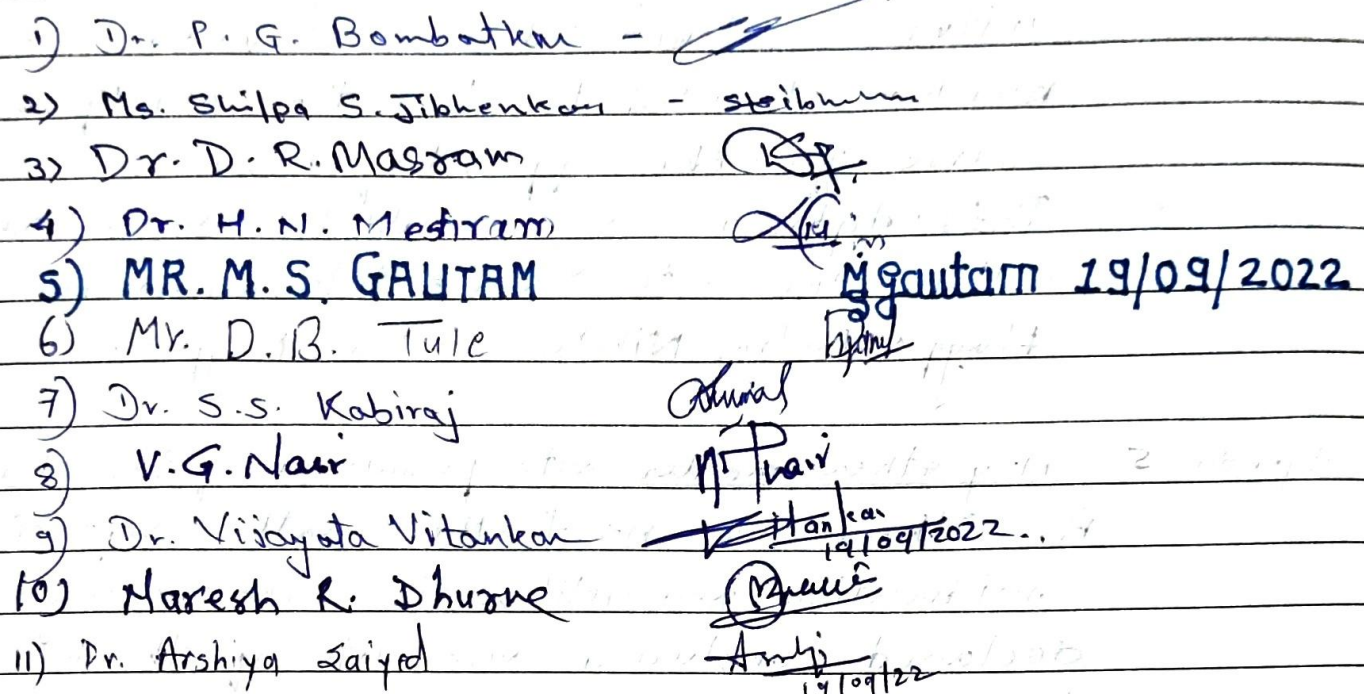 1) Dr. P. G. Bombatkar -
2) Ms. Shilpa S. Jibhenkar -
3) Dr. D. R. Masram
4) Dr. H. N. Meshram
5) MR. M. S. GAUTAM Mgautam 19/09/2022
6) Mr. D. B. Tule
7) Dr. S.S. Kabiraj
8) V. G. Nair Nair
9) Dr. Vijayata Vitankar Vitankar
19/09/2022..
10) Naresh R. Dhurve
11) Dr. Arshiya Saiyed
19/09/22